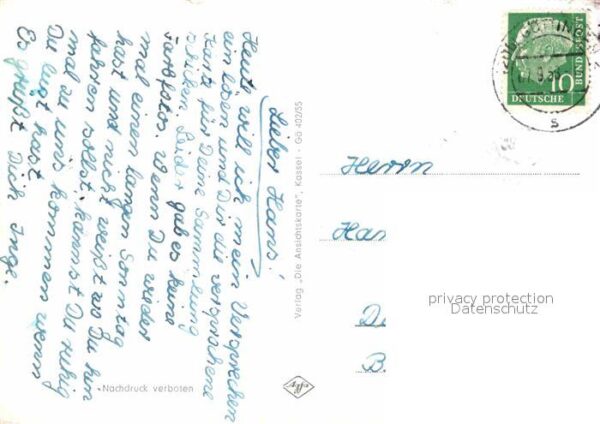 Lieber Hans!
Heute will ich mein Versprechen
einlösen und Dir die versprochene
Karte für Deine Sammlung
schicken. Leider gab es keine
Farbfotos. Wenn Du wieder
mal einen langen Sonntag
hast und nicht weißt wo Du hin
fahren sollst, kannst Du ruhig
mal zu uns kommen wenn
Du Lust hast.
Es grüßt Dich Inge.
Verlag „Die Ansichtskarte“, Kassel · Gö 402/55
Nachdruck verboten
10
DEUTSCHE
BUNDESPOST
s
Herrn
Han
D.
B.
privacy protection
Datenschutz